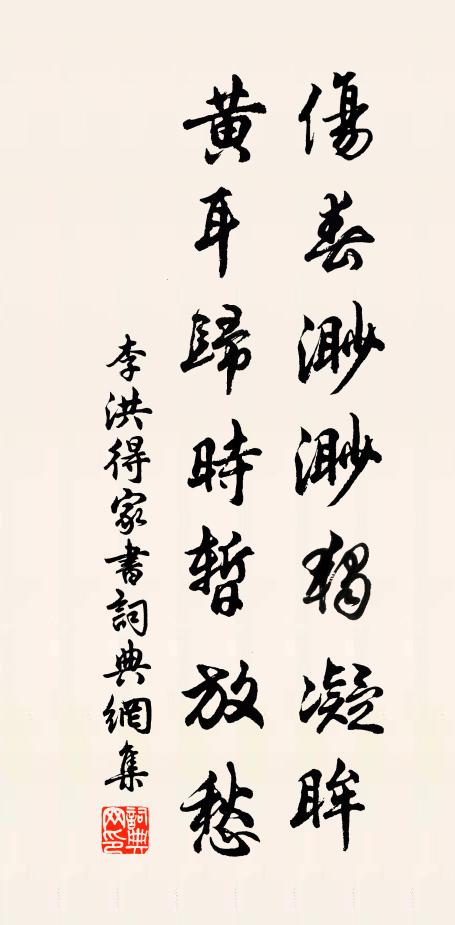 傷春渺渺獨凝眸
黃耳歸時暫放愁
李洪得家書詞典網集
詞典網印